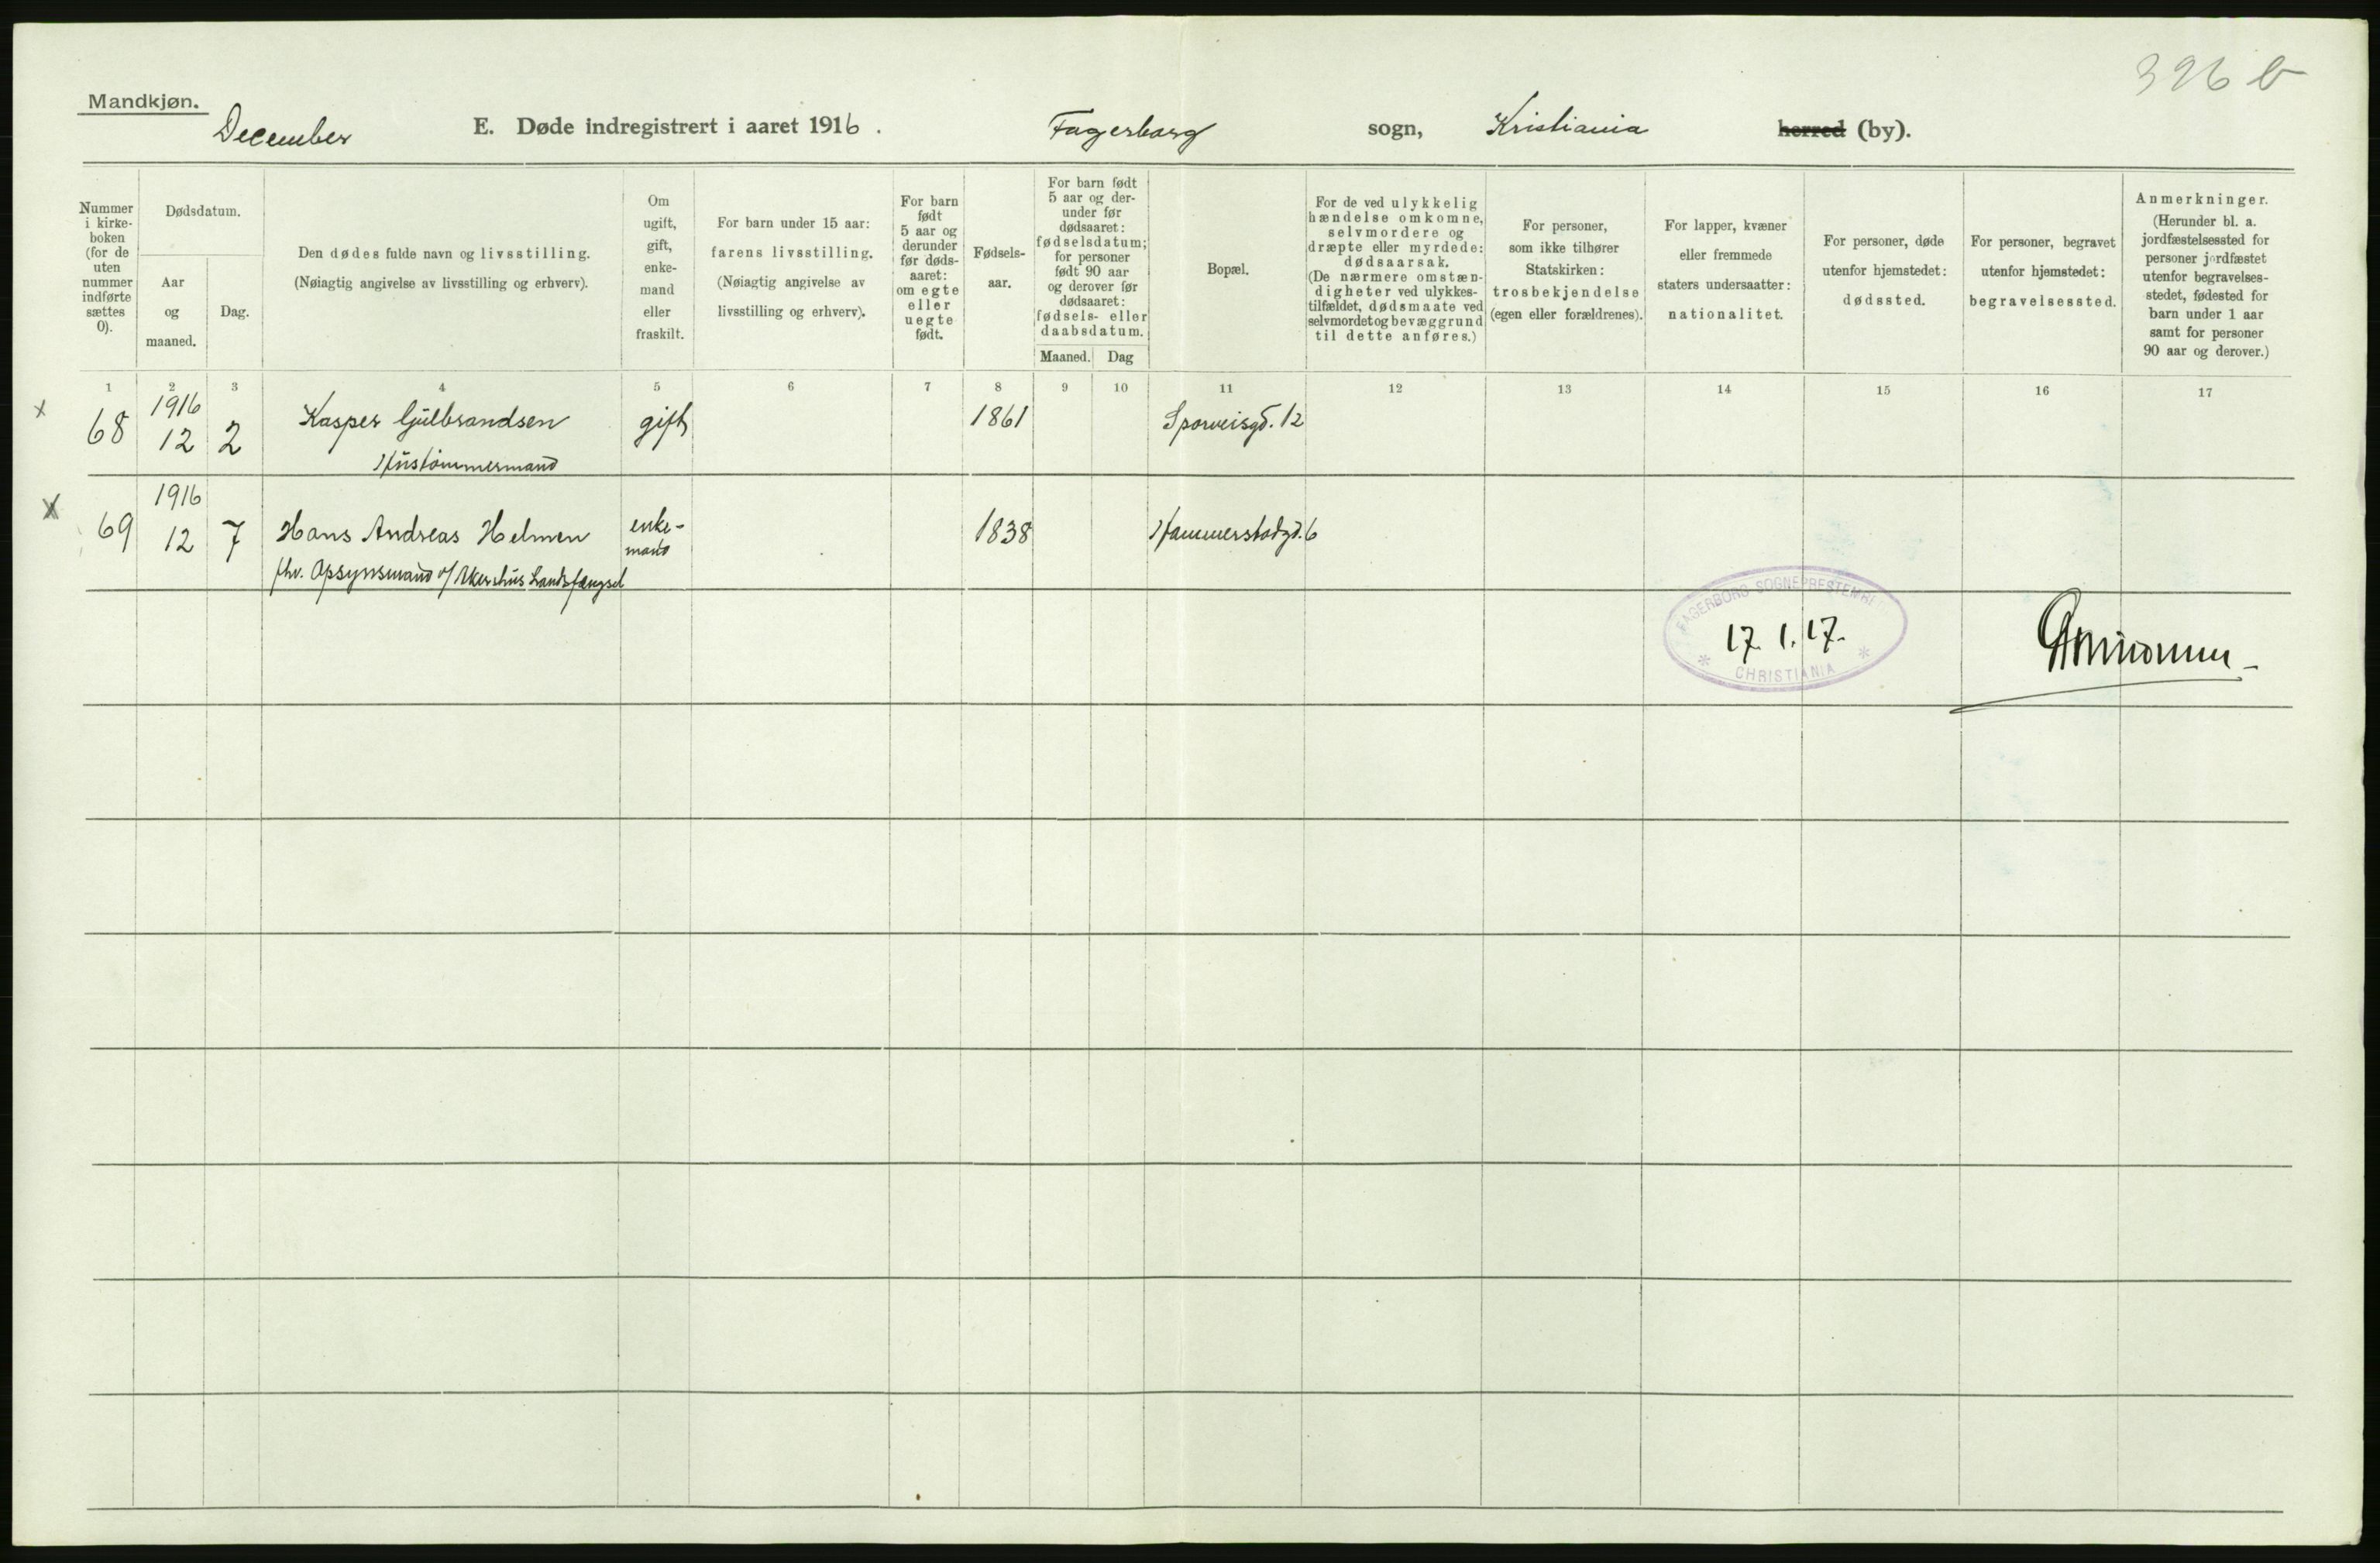 396 b
Mandkjøn.
December
E. Døde indregistrert i aaret 1916.
Fagerborg sogn, Kristiania herred (by).
Nummer
i kirke-
boken
(for de
uten
nummer
indførte
sættes
0).
Dødsdatum.
Aar
og
maaned.
Dag.
Den dødes fulde navn og livsstilling.
(Nøiagtig angivelse av livsstilling og erhverv).
Om
ugift,
gift,
enke-
mand
eller
fraskilt.
For barn under 15 aar:
farens livsstilling.
(Nøiagtig angivelse av
livsstilling og erhverv).
For barn
født
5 aar og
derunder
før døds-
aaret:
om egte
eller
uegte
født.
Fødsels-
aar.
For barn født
5 aar og der-
under før
dødsaaret:
fødselsdatum;
for personer
født 90 aar
og derover før
dødsaaret:
fødsels- eller
daabsdatum.
Maaned. Dag
Bopæl.
For de ved ulykkelig
hændelse omkomne,
selvmordere og
dræpte eller myrdede:
dødsaarsak.
(De nærmere omstæn-
digheter ved ulykkes-
tilfældet, dødsmaate ved
selvmordet og bevæggrund
til dette anføres.)
For personer,
som ikke tilhører
Statskirken:
trosbekjendelse
(egen eller forældrenes).
For lapper, kvæner
eller fremmede
staters undersaatter:
nationalitet.
For personer, døde
utenfor hjemstedet:
dødssted.
For personer, begravet
utenfor hjemstedet:
begravelsessted.
Anmerkninger.
(Herunder bl. a.
jordfæstelsessted for
personer jordfæstet
utenfor begravelses-
stedet, fødested for
barn under 1 aar
samt for personer
90 aar og derover.)
1 2 3 4 5 6 7 8 9 10 11 12 13 14 15 16 17
x 1916
68 12 2 Kasper Gulbrandsen gift 1861 Sporveisgd. 12
Hustømmermand
x 1916
69 12 7 Hans Andreas Helmen enke- 1838 Hammerstadgd. 6
mand
fhv. Opsynsmand v/ Akershus Landsfængsel
FAGERBORG SOGNEPRESTEMBE
17. 1. 17.
* CHRISTIANIA *